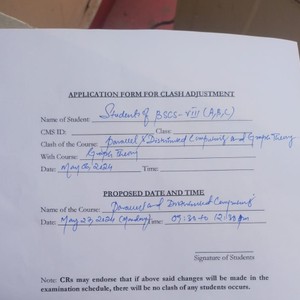 APPLICATION FORM FOR CLASH ADJUSTMENT
Name of Student: Students of BSCS-VIII (A,B,C)
CMS ID: Class
Clash of the Course: Parallel & Distributed Computing and Graph Theory
With Course: Graph Theory
Date: May 2024 Time:
PROPOSED DATE AND TIME
Name of the Course: Parallel and Distributed Computing
Date: May 27, 2024 (Monday) Time: 09:30 to 12:30 pm
Signature of Students
Note: CRs may endorse that if above said changes will be made in the
examination schedule, there will be no clash of any students occurs.